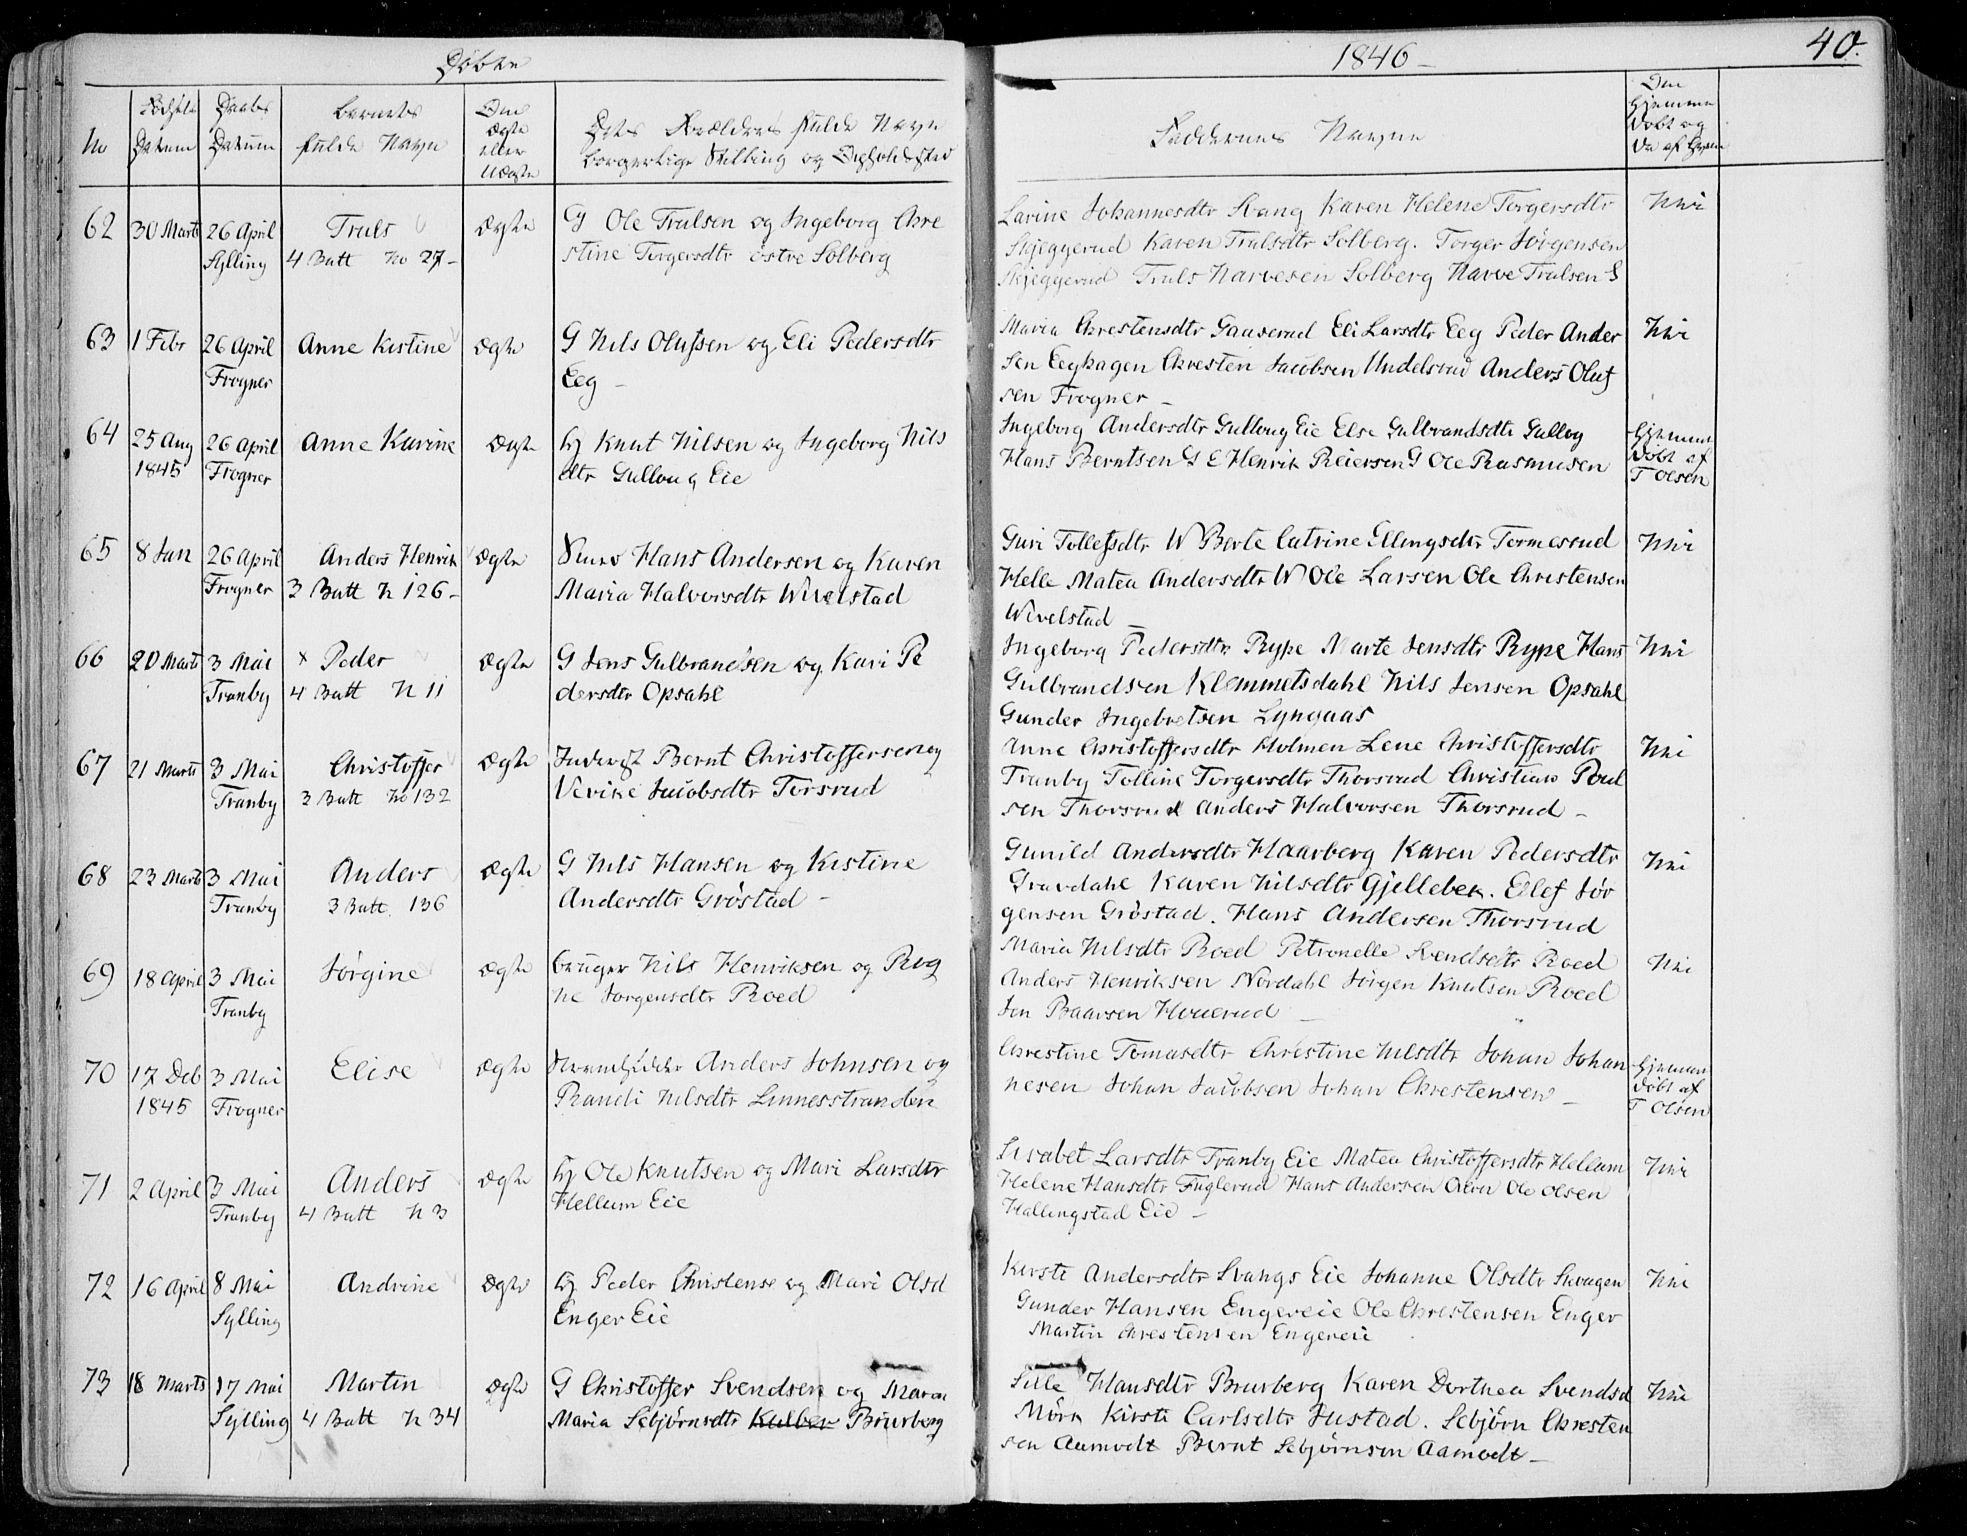 Døbte
1846 -
40.
No
Fødsels Datum
Daabs Datum
Barnets fulde Navn
Om ægte eller Uægte
Dets Forældres fulde Navn
borgerlige Stilling og Opholdssted
Faddernes Navne
Om hjemme døbt og
62 30 Marts 26 April Truls ægte G Ole Trulsen og Ingeborg Chre
Sylling 4 Batt No 27- stine Torgersdtr østre Solberg
Larine Johannesdtr Svang Karen Helene Torgersdtr Nei
Skjeggerud Karen Trulsdtr Solberg. Torger Jørgensen
Skjeggerud Truls Narvesen Solberg Narve Trulsen S
63 1 Febr 26 April Anne Kistine ægte G Nils Olufsen og Eli Pedersdtr
Frogner Eeg -
Maria Chrestensdtr Gaaserud Eli Larsdtr Eeg Peder Ander Nei
sen Eeghagen Chresten Jacobsen Undelsrud Anders Oluf
sen Frogner -
64 25 Aug 26 April Anne Karine ægte Hj Knut Nilsen og Ingeborg Nils
1845 Frogner dtr Gulloug Eie
Ingeborg Andersdtr Gulloug Eie Else Gulbrandsdtr Gullog hjemme
Hans Berntsen G E Henrik Reiersen G Ole Rasmusen døbt af
T Olsen
65 8 Jan 26 April Anders Henrik ægte Hans Andersen og Karen
Frogner 3 Batt N 126- Maria Halvorsdtr Wivelstad
Guri Tollefsdtr W Berte Catrine Ellingsdtr Tormesrud Nei
Helle Matea Andersdtr W Ole Larsen Ole Christensen
Wivelstad -
66 20 Marts 3 Mai x Peder ægte G Jens Gulbrandsen og Kari Pe
Tranby 4 Batt N 11 dersdtr Opsahl
Ingeborg Pedersdtr Rype Marte Jensdtr Rype Hans Nei
Gulbrandsen Klemmetsdahl Nils Jensen Opsahl
Gunder Ingebretsen Lyngaas
67 21 Marts 3 Mai Christoffer ægte Inderst Bernt Christoffersen og
Tranby 3 Batt No 132 Verike Jacobsdtr Torsrud
Anne Christoffersdtr Holmen Lene Christoffersdtr Nei
Tranby Tolline Torgersdtr Thorsrud Christian Poul
sen Thorsrud Anders Halvorsen Thorsrud -
68 23 Marts 3 Mai Anders ægte G Nils Hansen og Kistine
Tranby 3 Batt. 136 Andersdtr Grøstad -
Gunild Andersdtr Haarberg Karen Pedersdtr Nei
Gravdahl Karen Nilsdtr Gjellebek. Ellef Jør
gensen Grøstad. Hans Andersen Thorsrud
69 18 April 3 Mai Jørgine ægte Bruger Nils Henriksen og Rag
Tranby ne Jorgensdtr Roed
Maria Nilsdtr Roed Petronelle Svendsdtr Roed Nei
Anders Henriksen Nordahl Jörgen Knutsen Roed
Jon Paavsen Houerud -
70 17 Deb 3 Mai Elise ægte Strandsidder Anders Johnsen og
1845 Frogner Randi Nilsdtr Linnesstranden
Chrestine Tomasdtr Christine Nilsdtr Johan Johan hjemme
nesen Johan Jacobsen Johan Chrestensen - døbt af
T Olsen
71 2 April 3 Mai Anders ægte Hj Ole Knutsen og Mari Larsdtr
Tranby 4 Batt N 3 Hellum Eie
Lisabet Larsdtr Tranby Eie Matea Christoffersdtr Hellum Nei
Helene Hansdtr Fuglerud Hans Andersen Ole Olsen
Hallingstad Eie -
72 16 April 8 Mai Andrine ægte Hj Peder Christense og Mari Olsd
Sylling Enger Eie
Kirsti Andersdtr Svangs Eie Johanne Olsdtr Skaugen Nei
Gunder Hansen Engereie Ole Chrestensen Enger
Martin Chrestensen Engereie
73 18 Marts 17 Mai Martin ægte G Christoffer Svendsen og Maren
Sylling 4 Batt N 34 Maria Sebjørnsdtr Kulber Brurberg
Sille Hansdtr Brurberg Karen Dorthea Svendsd Nei
Mörk Kirsti Carlsdtr Justad. Sebjörn Chresten
sen Aamodt Bernt Sebjørnsen Aamodt -